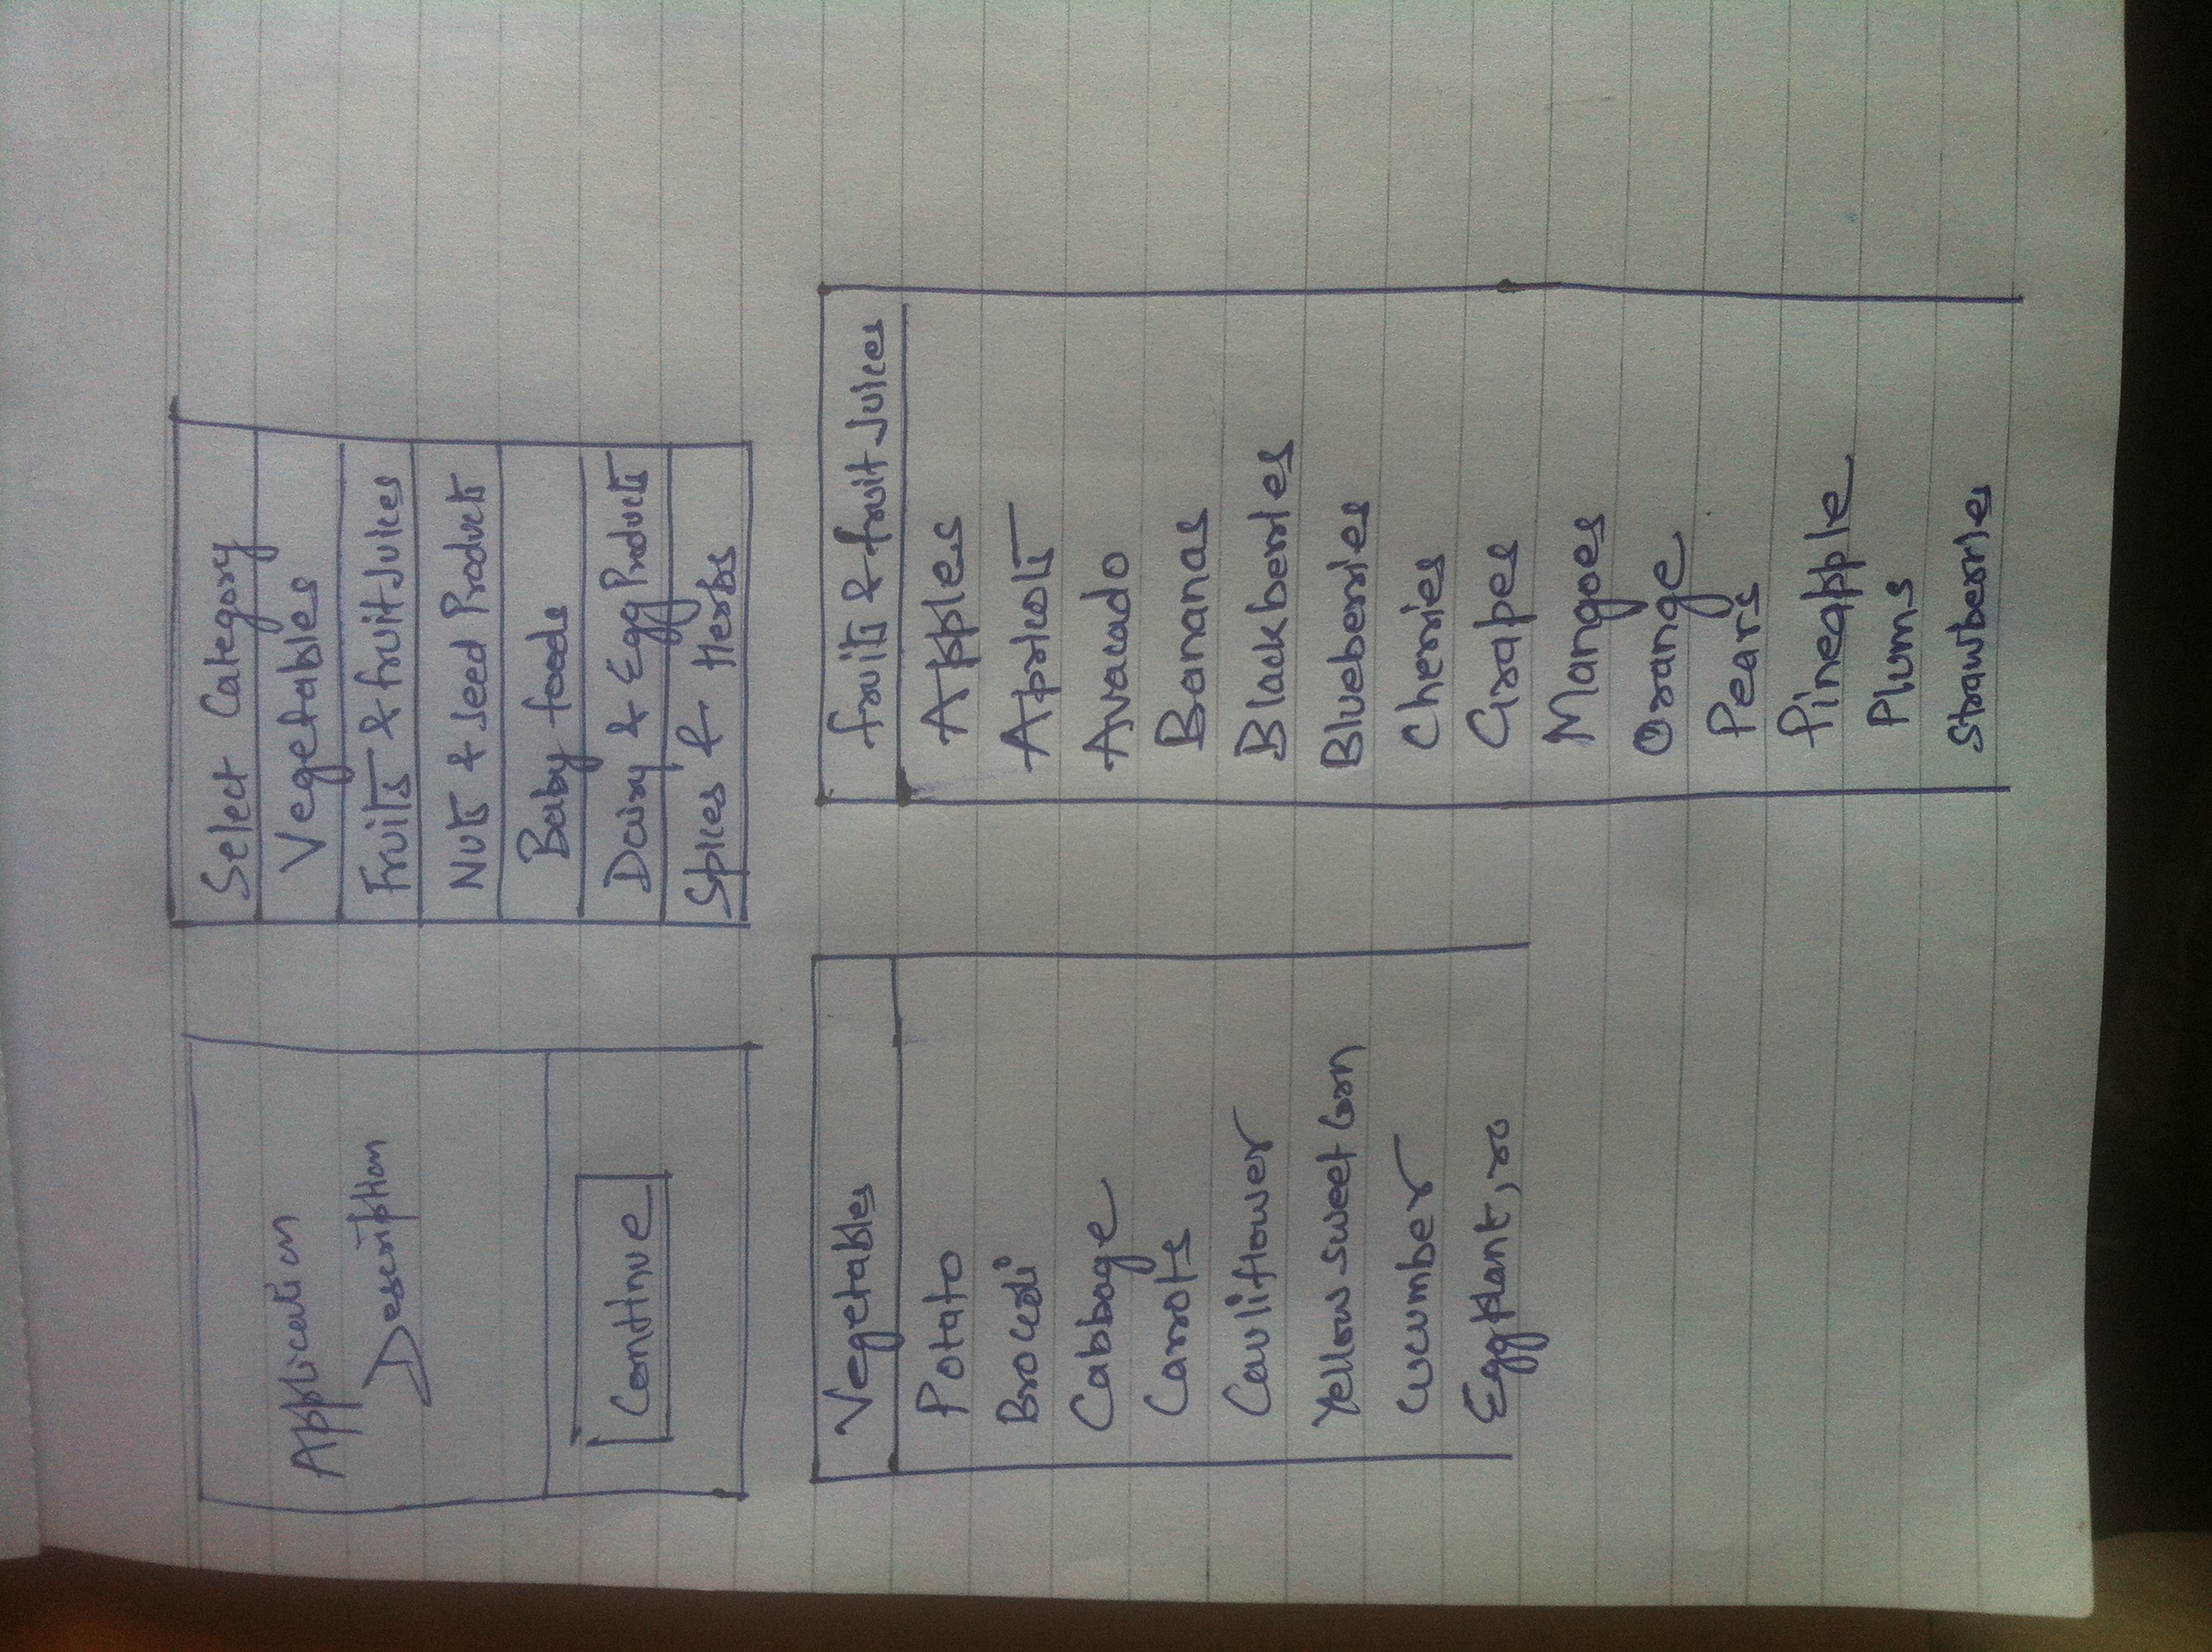 Application
Description
Continue
Select Category
Vegetables
Fruits & fruit Juices
Nuts & seed Products
Baby foods
Dairy & Egg Products
Spices & Herbs
Vegetables
Potato
Brocoli
Cabbage
Carrots
Cauliflower
Yellow sweet Corn
Cucumber
Eggplant,
fruits & fruit Juices
Apples
Apricots
Avacado
Bananas
Blackberries
Blueberries
Cherries
Grapes
Mangoes
Orange
Pears
Pineapple
Plums
Strawberries